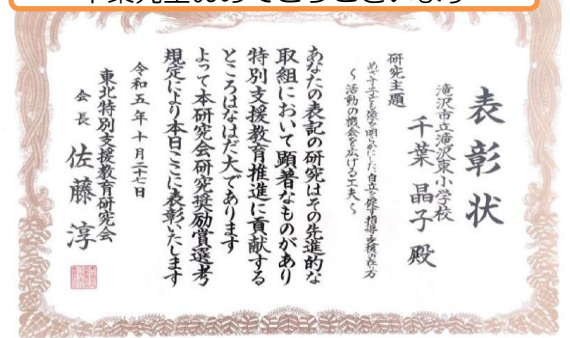 千葉先生おめでとうございます
表彰状
滝沢市立滝沢東小学校
千葉晶子殿
研究主題
めざす子ども像を明らかにした自立を促す指導・支援の在り方
~活動の機会を広げる工夫~
あなたの表記の研究はその先進的な
取組において顕著なものがあり
特別支援教育推進に貢献する
ところはなはだ大であります
よって本研究会研究奨励賞選考
規定により本日ここに表彰いたします
令和五年十月二十七日
東北特別支援教育研究会
会長 佐藤淳